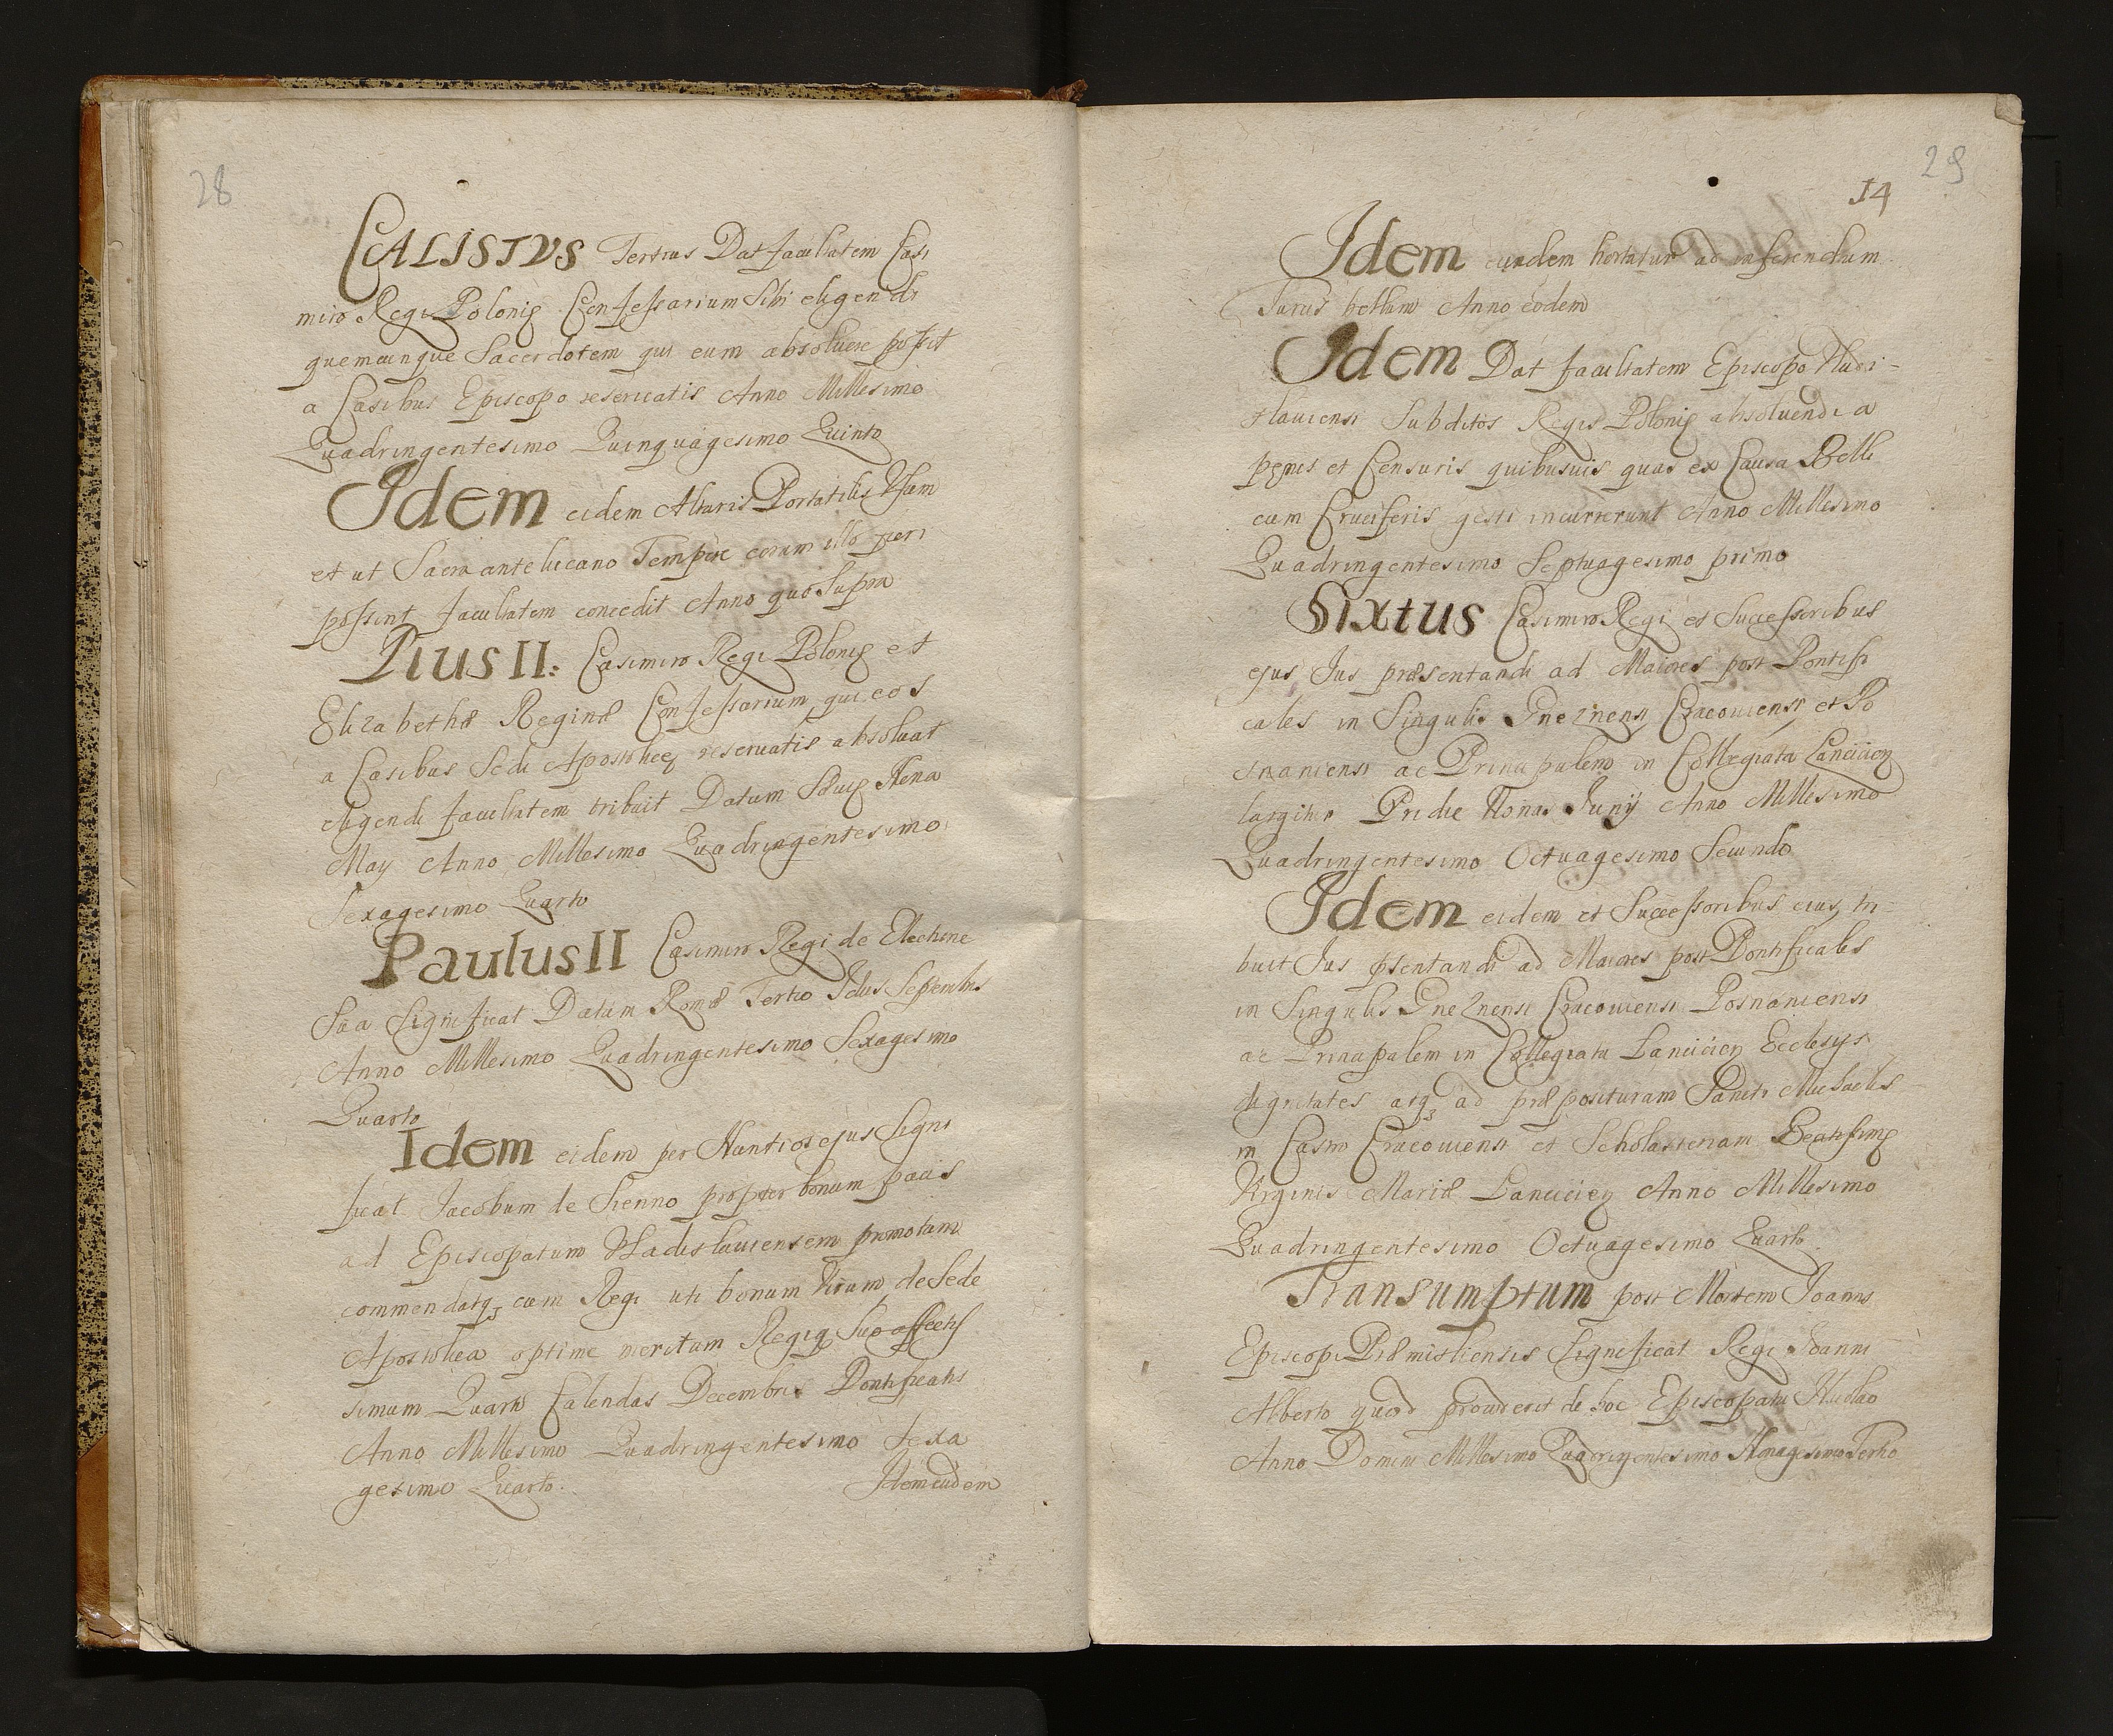 28
CALISTVS Tertius Dat facultatem Casi
miro Regi Polonię Confessarium Sibi eligendi
quemcunque Sacerdotem qui eum absoluere possit
a Casibus Episcopo reseruatis Anno Millesimo
Quadringentesimo Quinquagesimo Quinto
Idem eidem Altaris Portatilis Vsum
et ut Sacra antelucano Tempore coram illo peri
possint facultatem concedit Anno quo Supra
Pius II: Casimiro Regi Polonię et
Elizabethæ Reginæ Confessarium qui eos
a Casibus Sedi Apostolicę reseruatis absoluat
eligendi facultatem tribuit Datum Nona
May Anno Millesimo Quadringentesimo
Sexagesimo Quarto
Paulus II Casimiro Regi de Electione
Sua Significat Datum Romæ Tertio Idus Septembris
Anno Millesimo Quadringentesimo Sexagesimo
Quarto
Idem eidem per Nuntios ejus Signi
ficat Jacobum de Sienno propter bonum pacis
ad Episcopatum Vladislauiensem promotum
commendatq3 eum Regi uti bonum Virum de Sede
Apostolica optime meritum Regiq Suo affectis
simum Quarto Calendas Decembris Pontificatus
Anno Millesimo Quadringentesimo Sexa
gesimo Quarto.
Idem eudem
29
14
Idem eundem hortatur ad inferendum
Turcis bellum Anno eodem
Idem Dat facultatem Episcopo Vladi-
slauiensi Subditos Regis Polonię absoluendi a
pęnis et Censuris quibusuis quas ex Causa Belli
cum Cruciferis gesti incurrerunt Anno Millesimo
Quadringentesimo Septuagesimo primo
Sixtus Casimiro Regi et Successoribus
ejus Jus præsentandi ad Maiores post Pontifi
cales in Singulis Gneznensi Cracouiensi et Po
snaniensi ac Principalem in Collegiata Lancicien
largitur Pridie Nonas Junij Anno Millesimo
Quadringentesimo Octuagesimo Secundo
Idem eidem et Successoribus eius tri-
buit Jus psentandi ad Maiores post Pontificales
in Singulis Gneznensi Cracouiensi Posnaniensi
ac Principalem in Collegiata Lancicien Ecclesys
dignitates atq3 ad præposituram Sancti Michaelis
in Castro Cracouiensi et Scholasteriam Beatissimę
Virginis Mariæ Lancicien Anno Millesimo
Quadringentesimo Octuagesimo Quarto
Transumptum post Mortem Joannis
Episcopi Præmisliensis Significat Regi Joanni
Alberto quod prouiderit de hoc Episcopatu Nicolao
Anno Domini Millesimo Quadringentesimo Nonagesimo Tertio